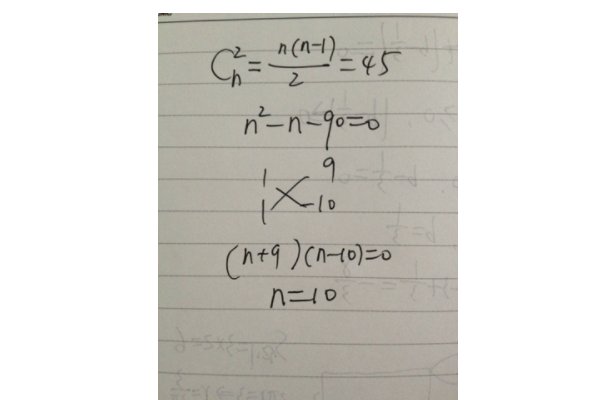 C_n^2 = n(n-1)/2 = 45
n²-n-90=0
1 9
1 -10
(n+9)(n-10)=0
n=10